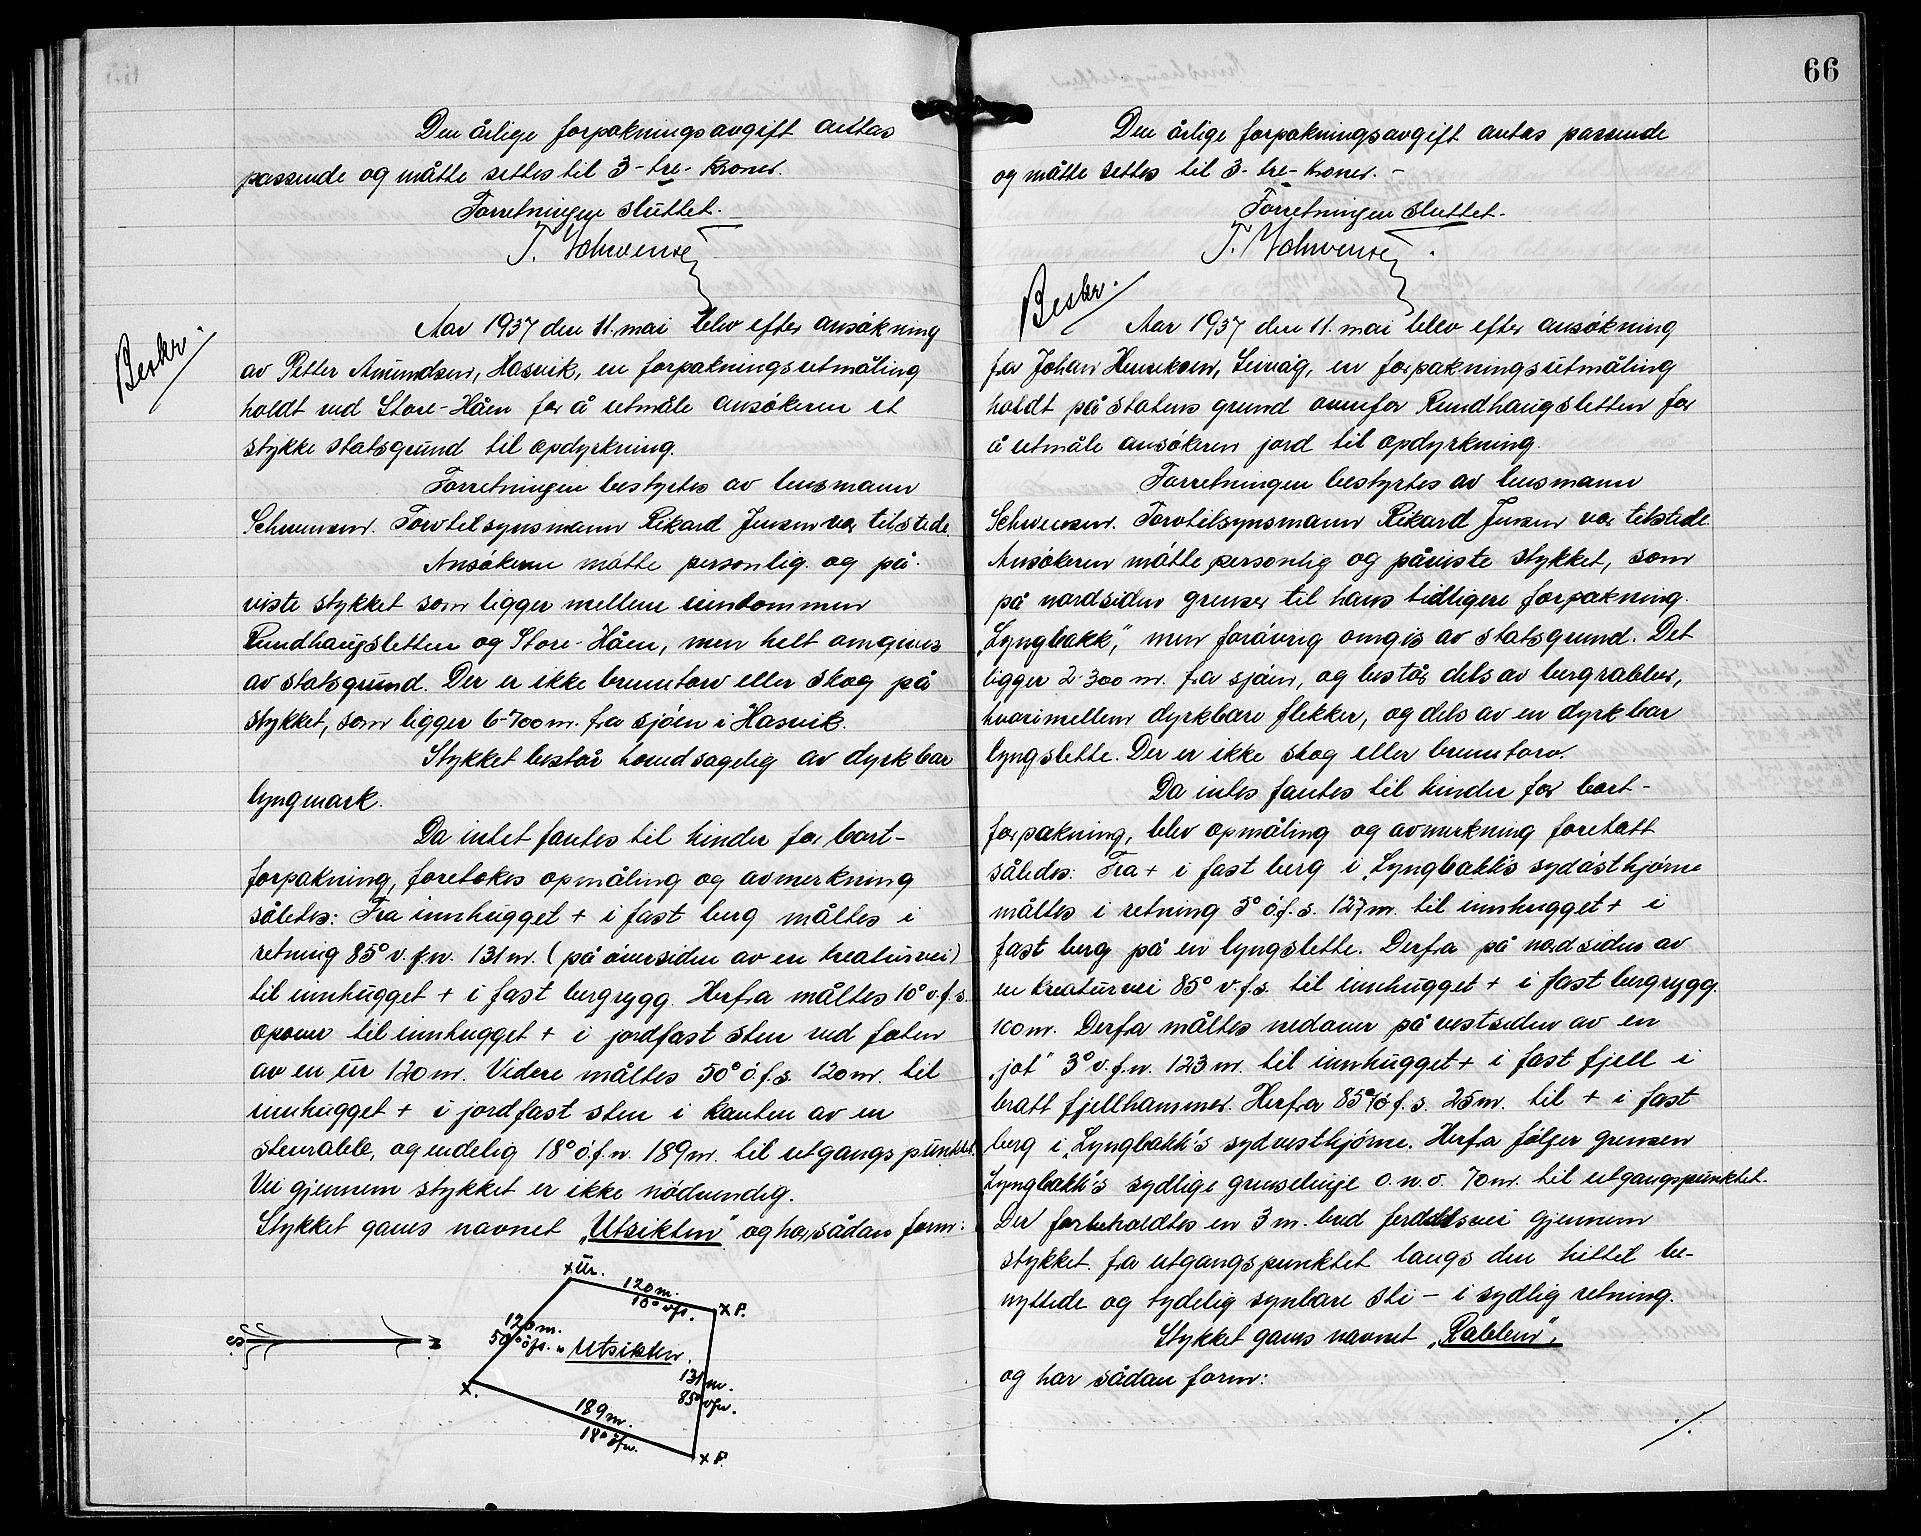 Den årlige forpakningsavgift antas
passende og måtte settes til 3 - tre - kroner.
Forretningen sluttet.
T. Schwensen
Beskr.
Aar 1937 den 11. mai blev efter ansøkning
av Petter Amundsen, Hasvik, en forpakningsutmåling
holdt ved Store-Håen for å utmåle ansøkeren et
stykke statsgrund til opdyrkning.
Forretningen bestyrtes av lensmann
Schwensen. Torvtilsynsmann Rikard Jensen var tilstede.
Ansøkeren møtte personlig og på-
viste stykket som ligger mellem eiendommen
Rundhaugsletten og Store-Håen, men helt omgives
av statsgrund. Der er ikke brenntorv eller skog på
stykket, som ligger 6-700 m. fra sjøen i Hasvik.
Stykket består hovedsagelig av dyrkbar
lyngmark.
Da intet fantes til hinder for bort-
forpakning, foretokes opmåling og avmerkning
således: Fra innhugget + i fast berg måltes i
retning 85° v.f.n. 131 m. (på øversiden av en kreaturvei)
til innhugget + i fast bergrygg. Herfra måltes 10° v.f.s.
opover til innhugget + i jordfast sten ved foten
av en ur 120 m. Videre måltes 50° ø.f.s. 120 m. til
innhugget + i jordfast sten i kanten av en
stenrabb, og endelig 18° ø.f.n. 189 m. til utgangspunktet.
Vei gjennem stykket er ikke nødvendig.
Stykket gaves navnet "Utsikten" og har sådan form:
x Ur.
120 m.
10° vfs.
x P.
120 m.
50° øfs.
"Utsikten".
S.
N.
131 m.
85° vfn.
x.
189 m.
18° øfn.
x P.
66
Den årlige forpakningsavgift antas passende
og måtte settes til 3 - tre - kroner. -
Forretningen sluttet.
T. Schwensen.
Beskr.
Aar 1937 den 11. mai blev efter ansøkning
fra Johan Henriksen, Leirvåg, en forpakningsutmåling
holdt på statens grund ovenfor Rundhaugsletten for
å utmåle ansøkeren jord til opdyrkning.
Forretningen bestyrtes av lensmann
Schwensen. Torvtilsynsmann Rikard Jensen var tilstede.
Ansøkeren møtte personlig og påviste stykket, som
på nordsiden grenser til hans tidligere forpakning
"Lyngbakk", men forøvrig omgis av statsgrund. Det
ligger 2-300 m. fra sjøen, og består dels av bergrabber,
hvorimellem dyrkbare flekker, og dels av en dyrkbar
lyngslette. Der er ikke skog eller brenntorv.
Da intes fantes til hinder for bort-
forpakning, blev opmåling og avmerkning foretatt
således: Fra + i fast berg i "Lyngbakk's sydøsthjørne
måltes i retning 3° ø.f.s. 127 m. til innhugget + i
fast berg på en lyngslette. Derfra på nordsiden av
en kreaturvei 85° v.f.s. til innhugget + i fast bergrygg.
100 m. Derfra måltes nedover på vestsiden av en
"jot" 3° v.f.n. 123 m. til innhugget + i fast fjell i
bratt fjellhammer. Herfra 85° ø.f.s. 25 m. til + i fast
berg i "Lyngbakk's sydvesthjørne. Herfra følger grensen
Lyngbakk's sydlige grenselinje o.n.ø. 70 m. til utgangspunktet.
Der forbeholdtes en 3 m. bred ferdselsvei gjennem
stykket fra utgangspunktet langs den hittil be-
nyttede og tydelig synbare sti - i sydlig retning.
Stykket gaves navnet "Rabben",
og har sådan form:
./.